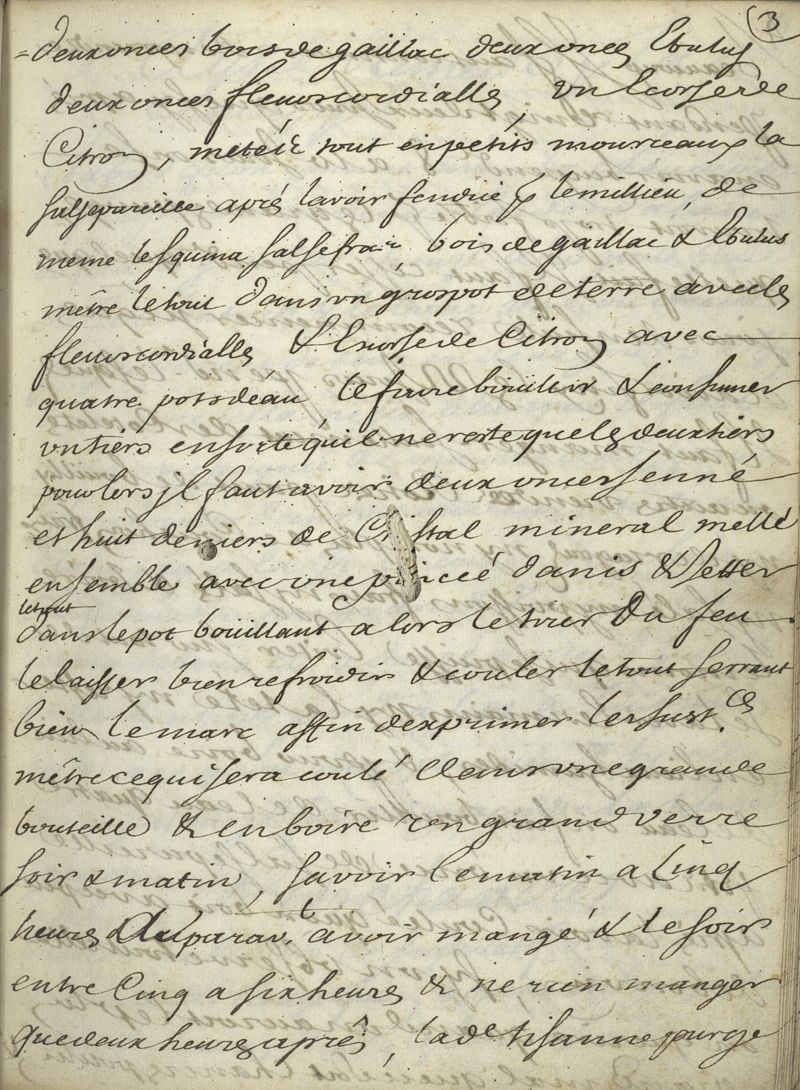 3
= deux onces bois de gaillac deux onces Ebulus
deux onces fleurs cordialles, un Ecorse de
Citron, metéz tout en petits mourceaux la
salseparaille aprés lavoir fendue p le millieu, de
meme lesquina salsefrax bois de gaillac & Ebulus
mêtre le tout dans un gros pot de terre avec les
fleurs cordialles & l'Ecorse de Citron avec
quatre pots déau le faire boulir & consumer
un tiers en sorte qu'il ne reste que les deux tiers
pour lors jl faut avoir deux onces senné
et huit deniers de Cristal mineral mellé
ensemble avec une pincéé danis & Jetter
le tout
dans le pot boüillant alors le tirer du feu
le laisser bien refroidir & couler le tout serrant
bien le marc affin dexprimer les sust.ces
mêtre ce qui sera coulé dans une grande
bouteille & en boire un grand verre
soir & matin, savoir le matin a Cinq
heures auparav.t avoir mangé & le soir
entre Cinq a six heures & ne rien manger
que deux heures aprés, lad.e tisanne purge